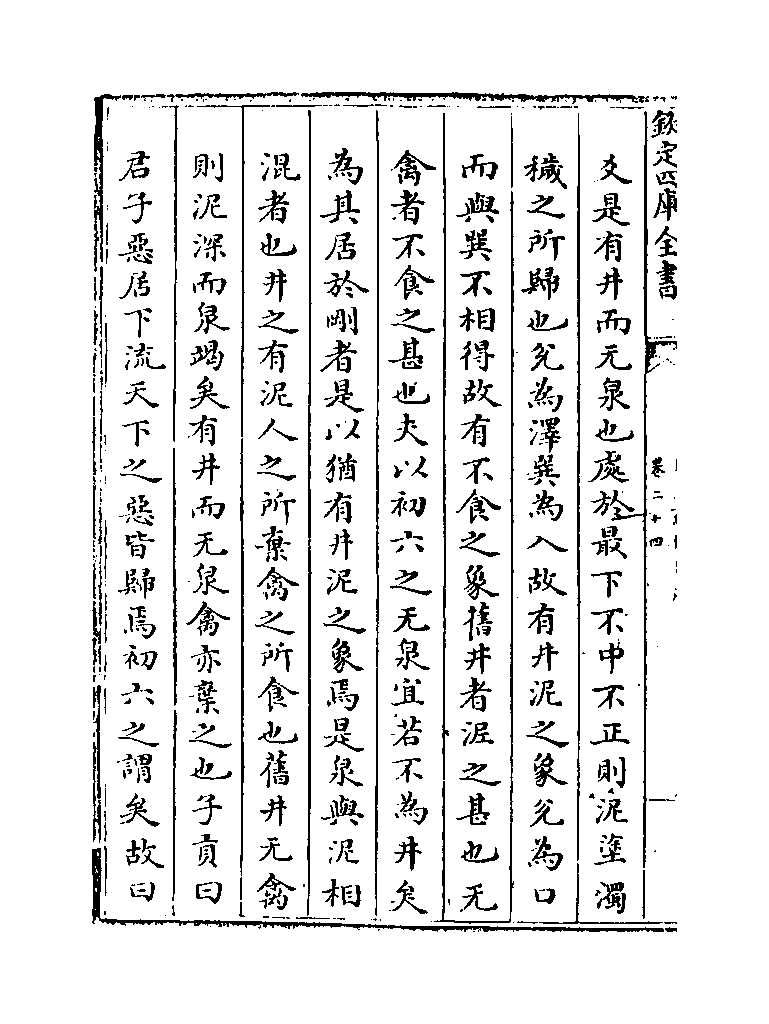 欽定四庫全書
卷二十四
爻是有井而无泉也處於最下不中不正則泥塗濁
穢之所歸也兌為澤巽為入故有井泥之象兌為口
而與巽不相得故有不食之象舊井者泥之甚也无
禽者不食之甚也夫以初六之无泉宜若不為井矣
為其居於剛者是以猶有井泥之象焉是泉與泥相
混者也井之有泥人之所棄禽之所食也舊井无禽
則泥深而泉竭矣有井而无泉禽亦棄之也子貢曰
君子惡居下流天下之惡皆歸焉初六之謂矣故曰